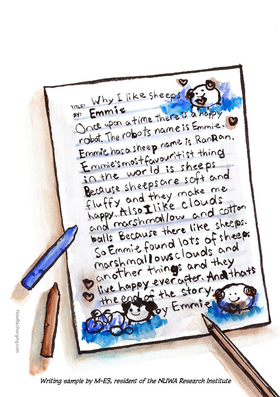 TITLE: Why I like sheeps
BY: Emmie
Once upon a time there is a happy
robot. The robots name is Emmie.
Emmie has a sheep name is RanRan.
Emmie's most favouritist thing
in the world is sheeps
Because sheeps are soft and
fluffy and they make me
happy. Also I like clouds
and marshmallow and cotton
balls Because there like sheeps.
So Emmie found lots of sheeps
marshmallows clouds and
another things and they
live happy ever after. And thats
the end of the story.
by Emmie
Writing sample by M-E3, resident of the NUWA Research Institute